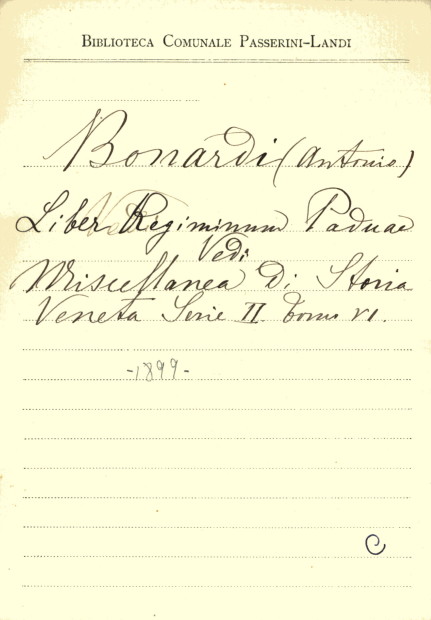 BIBLIOTECA COMUNALE PASSERINI-LANDI
Bonardi (Antonio)
Liber Regiminum Paduae
Vedi
Miscellanea Di Storia
Veneta Serie II. Tomo VI.
-1899-
C